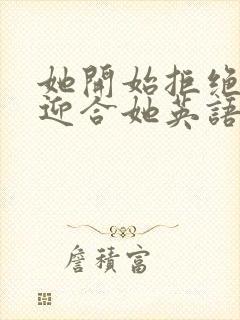 她開始拒絕
迎合她英語
詹積富